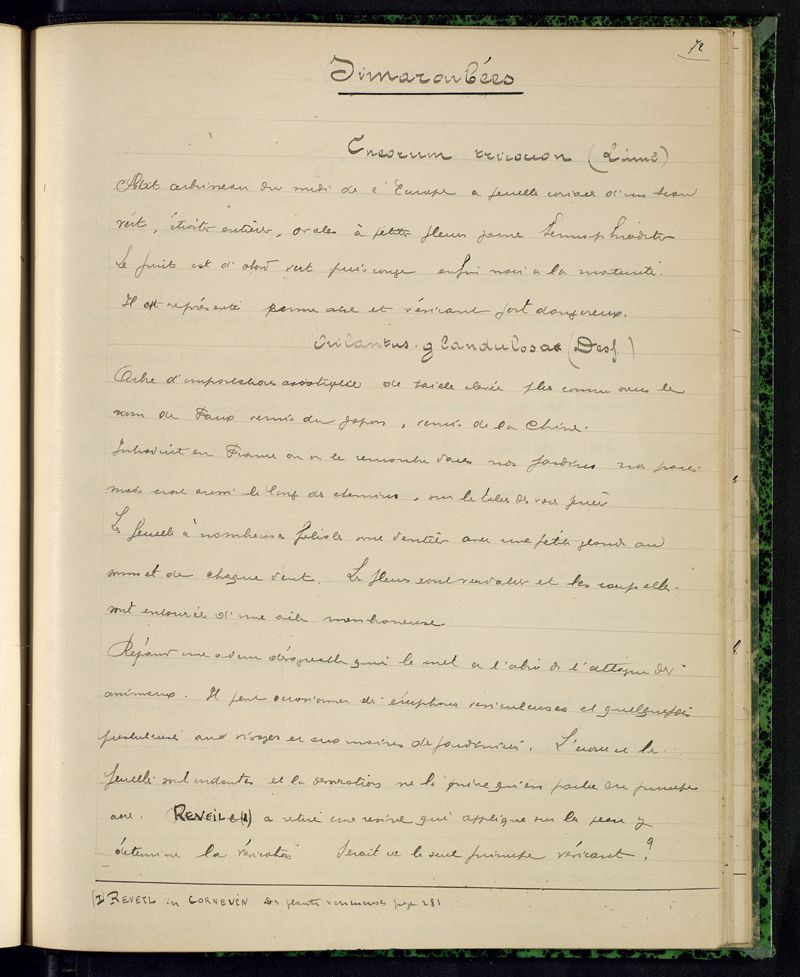 72
Simaroubées
Cneorum tricocon (Linné)
Petit arbrisseau du midi de l'Europe a feuille coriace d'un beau
vert, étroite entière, ovales à petite fleur jaune hermaphrodite
Le fruit est d'abord vert puis rouge enfin noir a la maturité.
Il est représenté comme acre et vésicant fort dangereux.
Ailantus glandulosa (Desf)
Arbre d'importation asiatique de taille elevée plus connu sous le
nom de Faux vernis du Japon, vernis de la Chine.
Introduit en France ou on le rencontre dans nos jardins nos parcs
mais croit aussi le long des chemins, sur le talus des voies ferrées
Les feuilles à nombreuses folioles sont dentées avec une petite glande au
sommet de chaque dent. Les fleurs sont verdatres et les carpelles
sont entourés d'une aile membraneuse
Répand une odeur désagreable qui le met a l'abri de l'attaque des
animaux. Il peut occasionner des éruptions vesiculeuses et quelquefois
pustuleuse aux visages et aux mains des jardiniers. L'écorce et les
feuilles sont irritantes et la dessication ne les prive qu'en partie du principe
acre. REVEIL (1) a retiré une resine qui appliqué sur la peau y
détermine la vésication Serait ce le seul principe vésicant ?
(1) REVEIL in CORNEVIN Des plantes veneneuses page 281